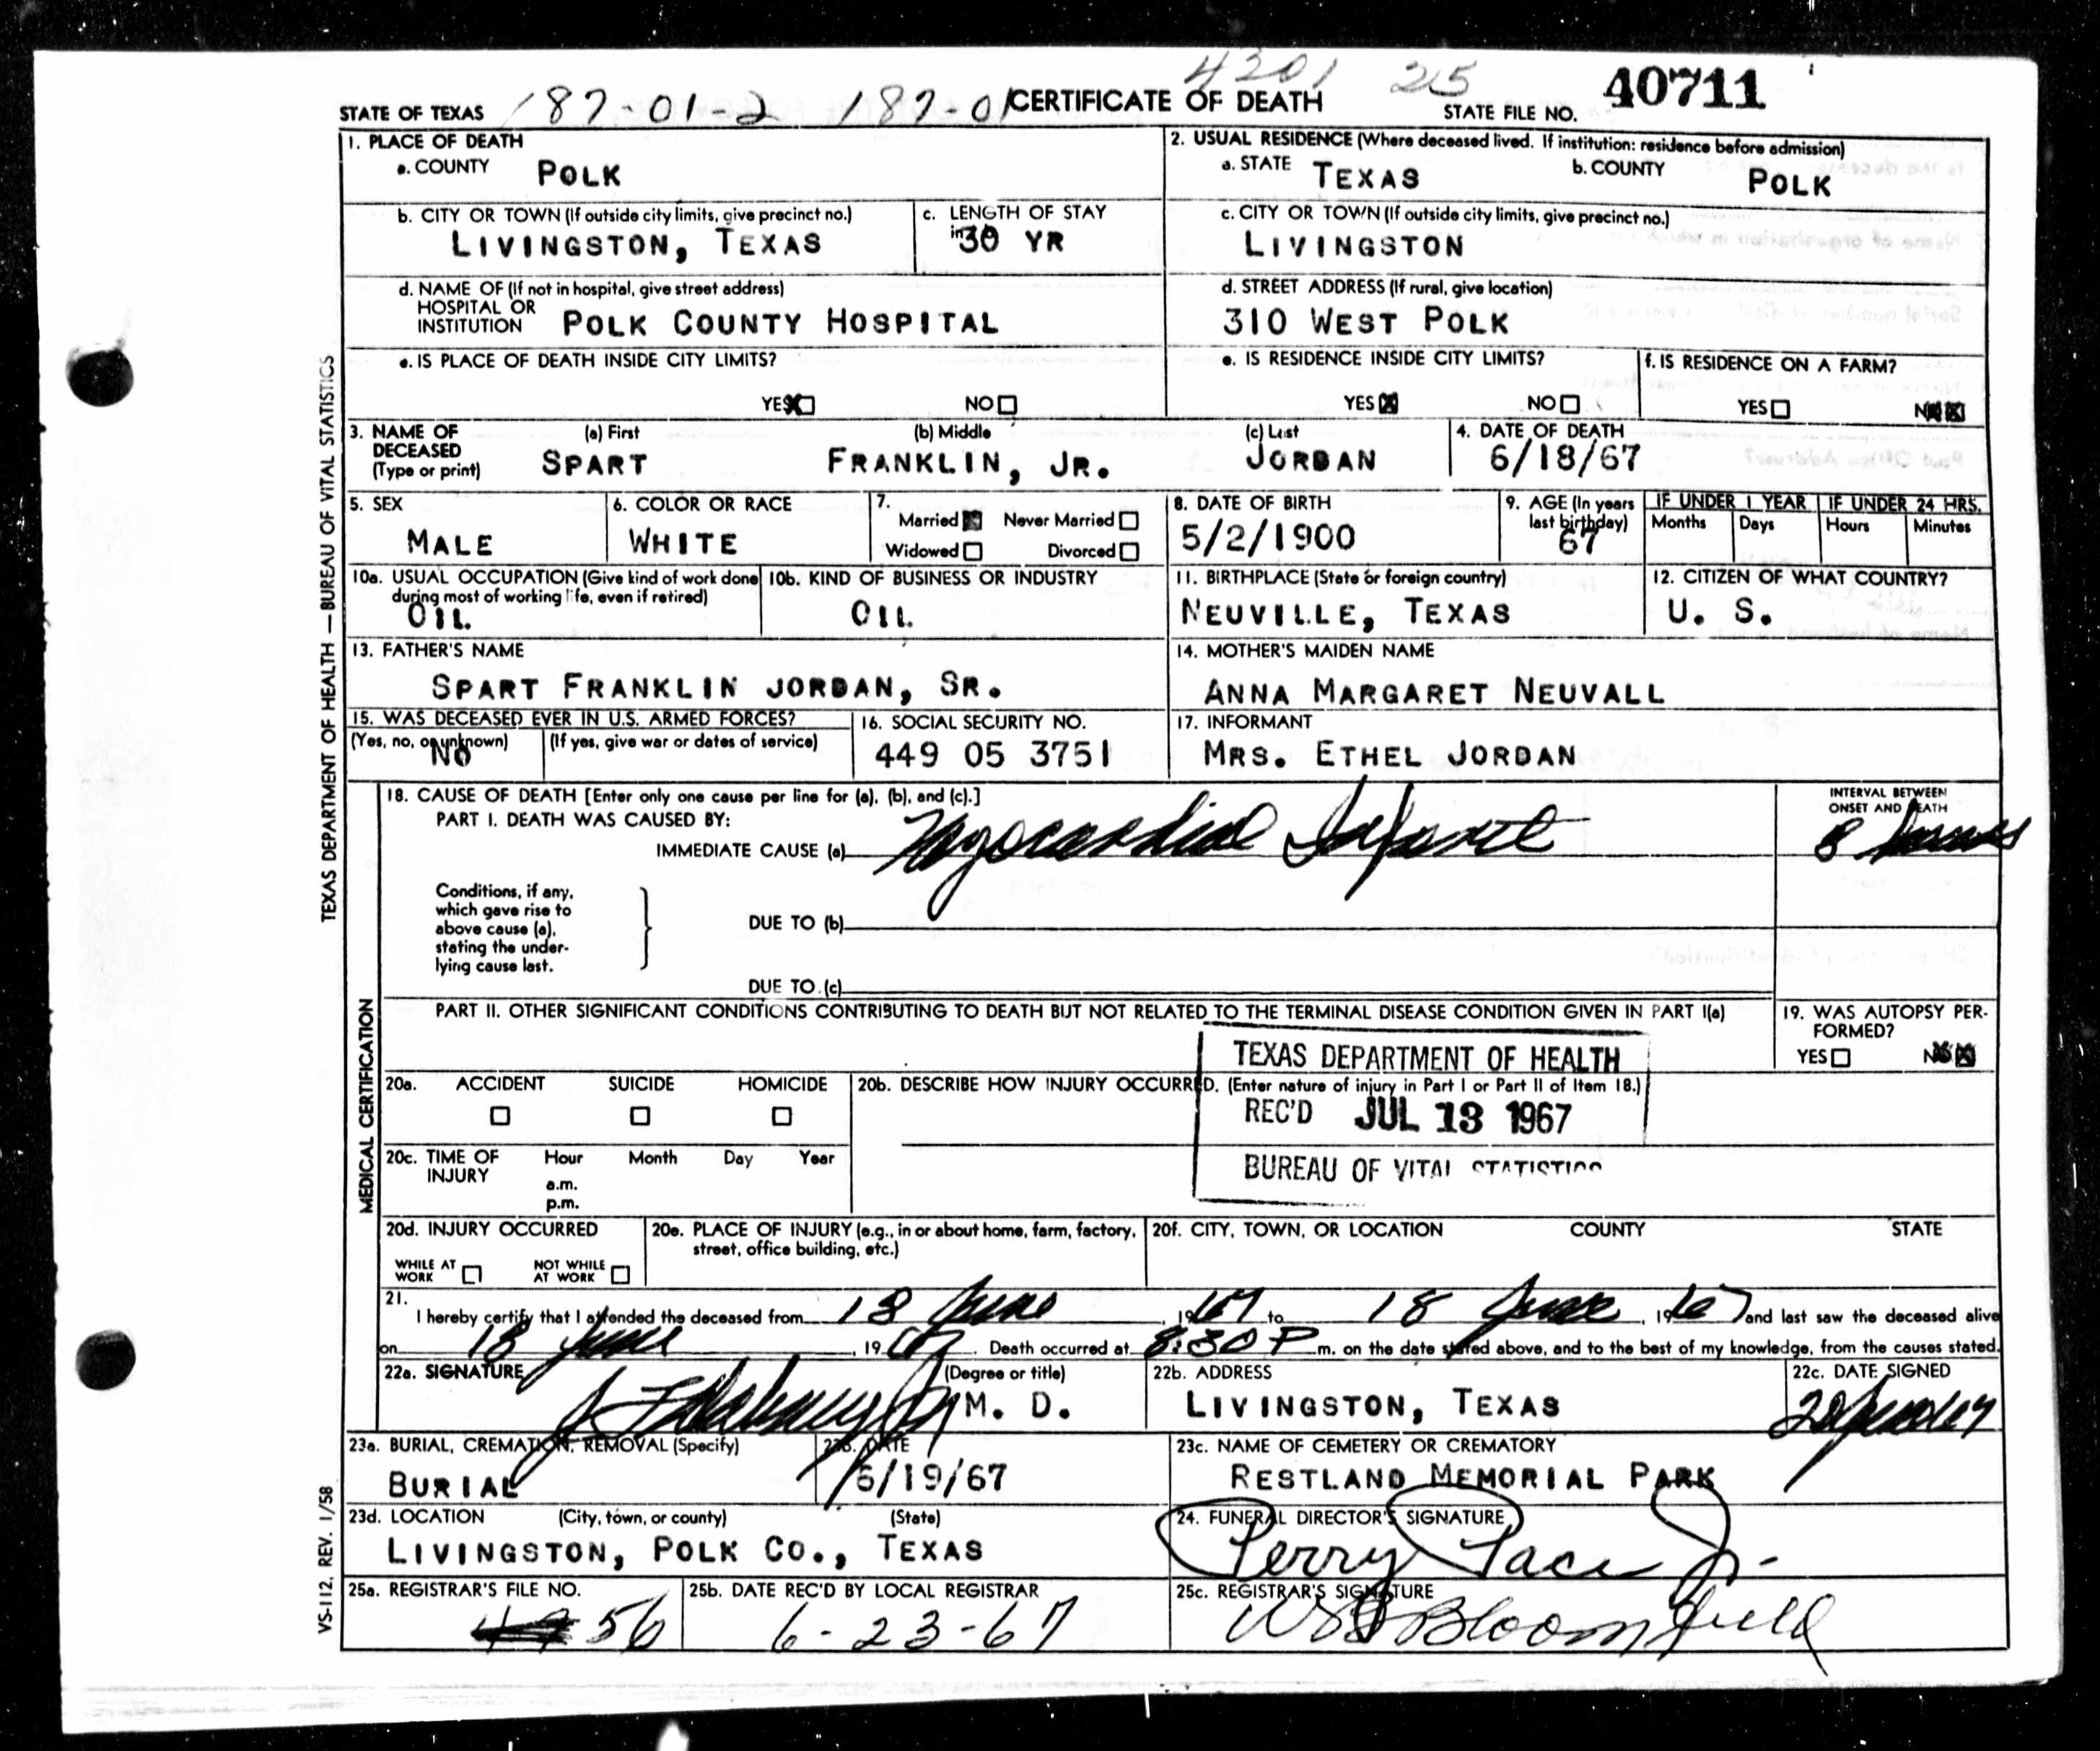 4201 215 40711
STATE OF TEXAS 187-01-2 187-01 CERTIFICATE OF DEATH STATE FILE NO.
1. PLACE OF DEATH
a. COUNTY POLK
2. USUAL RESIDENCE (Where deceased lived. If institution: residence before admission)
a. STATE TEXAS b. COUNTY POLK
b. CITY OR TOWN (If outside city limits, give precinct no.)
LIVINGSTON, TEXAS
c. LENGTH OF STAY
in 30 YR
c. CITY OR TOWN (If outside city limits, give precinct no.)
LIVINGSTON
d. NAME OF (If not in hospital, give street address)
HOSPITAL OR
INSTITUTION POLK COUNTY HOSPITAL
d. STREET ADDRESS (If rural, give location)
310 WEST POLK
e. IS PLACE OF DEATH INSIDE CITY LIMITS?
YES NO
e. IS RESIDENCE INSIDE CITY LIMITS?
YES NO
f. IS RESIDENCE ON A FARM?
YES NO
3. NAME OF DECEASED (Type or print)
(a) First (b) Middle (c) Last
SPART FRANKLIN, JR. JORDAN
4. DATE OF DEATH
6/18/67
5. SEX
MALE
6. COLOR OR RACE
WHITE
7.
Married Never Married
Widowed Divorced
8. DATE OF BIRTH
5/2/1900
9. AGE (In years last birthday)
67
IF UNDER 1 YEAR
Months Days
IF UNDER 24 HRS.
Hours Minutes
10a. USUAL OCCUPATION (Give kind of work done during most of working life, even if retired)
OIL
10b. KIND OF BUSINESS OR INDUSTRY
OIL
11. BIRTHPLACE (State or foreign country)
NEUVILLE, TEXAS
12. CITIZEN OF WHAT COUNTRY?
U. S.
13. FATHER'S NAME
SPART FRANKLIN JORDAN, SR.
14. MOTHER'S MAIDEN NAME
ANNA MARGARET NEUVALL
15. WAS DECEASED EVER IN U.S. ARMED FORCES?
(Yes, no, or unknown) (If yes, give war or dates of service)
NO
16. SOCIAL SECURITY NO.
449 05 3751
17. INFORMANT
MRS. ETHEL JORDAN
18. CAUSE OF DEATH [Enter only one cause per line for (a), (b), and (c).]
PART I. DEATH WAS CAUSED BY:
IMMEDIATE CAUSE (a) Myocardial Infarct
INTERVAL BETWEEN
ONSET AND DEATH
8 hours
Conditions, if any,
which gave rise to
above cause (a),
stating the under-
lying cause last.
DUE TO (b)
DUE TO (c)
PART II. OTHER SIGNIFICANT CONDITIONS CONTRIBUTING TO DEATH BUT NOT RELATED TO THE TERMINAL DISEASE CONDITION GIVEN IN PART I(a)
19. WAS AUTOPSY PER-
FORMED?
YES NO
TEXAS DEPARTMENT OF HEALTH
REC'D JUL 13 1967
BUREAU OF VITAL STATISTICS
20a. ACCIDENT SUICIDE HOMICIDE
20b. DESCRIBE HOW INJURY OCCURRED. (Enter nature of injury in Part I or Part II of Item 18.)
20c. TIME OF INJURY
Hour Month Day Year
a.m.
p.m.
20d. INJURY OCCURRED
WHILE AT WORK NOT WHILE AT WORK
20e. PLACE OF INJURY (e.g., in or about home, farm, factory,
street, office building, etc.)
20f. CITY, TOWN, OR LOCATION COUNTY STATE
21.
I hereby certify that I attended the deceased from 18 June, 1967 to 18 June, 1967 and last saw the deceased alive
on 18 June, 1967. Death occurred at 8:30 P m. on the date stated above, and to the best of my knowledge, from the causes stated.
22a. SIGNATURE (Degree or title)
M. D.
22b. ADDRESS
LIVINGSTON, TEXAS
22c. DATE SIGNED
20 June 67
23a. BURIAL, CREMATION, REMOVAL (Specify)
BURIAL
23b. DATE
6/19/67
23c. NAME OF CEMETERY OR CREMATORY
RESTLAND MEMORIAL PARK
23d. LOCATION (City, town, or county) (State)
LIVINGSTON, POLK CO., TEXAS
24. FUNERAL DIRECTOR'S SIGNATURE
Perry Pace Jr.
25a. REGISTRAR'S FILE NO.
56
25b. DATE REC'D BY LOCAL REGISTRAR
6-23-67
25c. REGISTRAR'S SIGNATURE
Bloomfield
TEXAS DEPARTMENT OF HEALTH — BUREAU OF VITAL STATISTICS
MEDICAL CERTIFICATION
VS-112, REV. 1/58